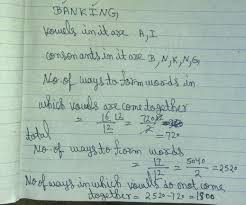 BANKING
vowels in it are A, I
consonants in it are B, N, K, N, G
No. of ways to form words in
which vowels are come together
= 720
total
No of ways to form words
= 5040/2 = 2520
No of ways in which vowels do not come
together = 2520-720 = 1800